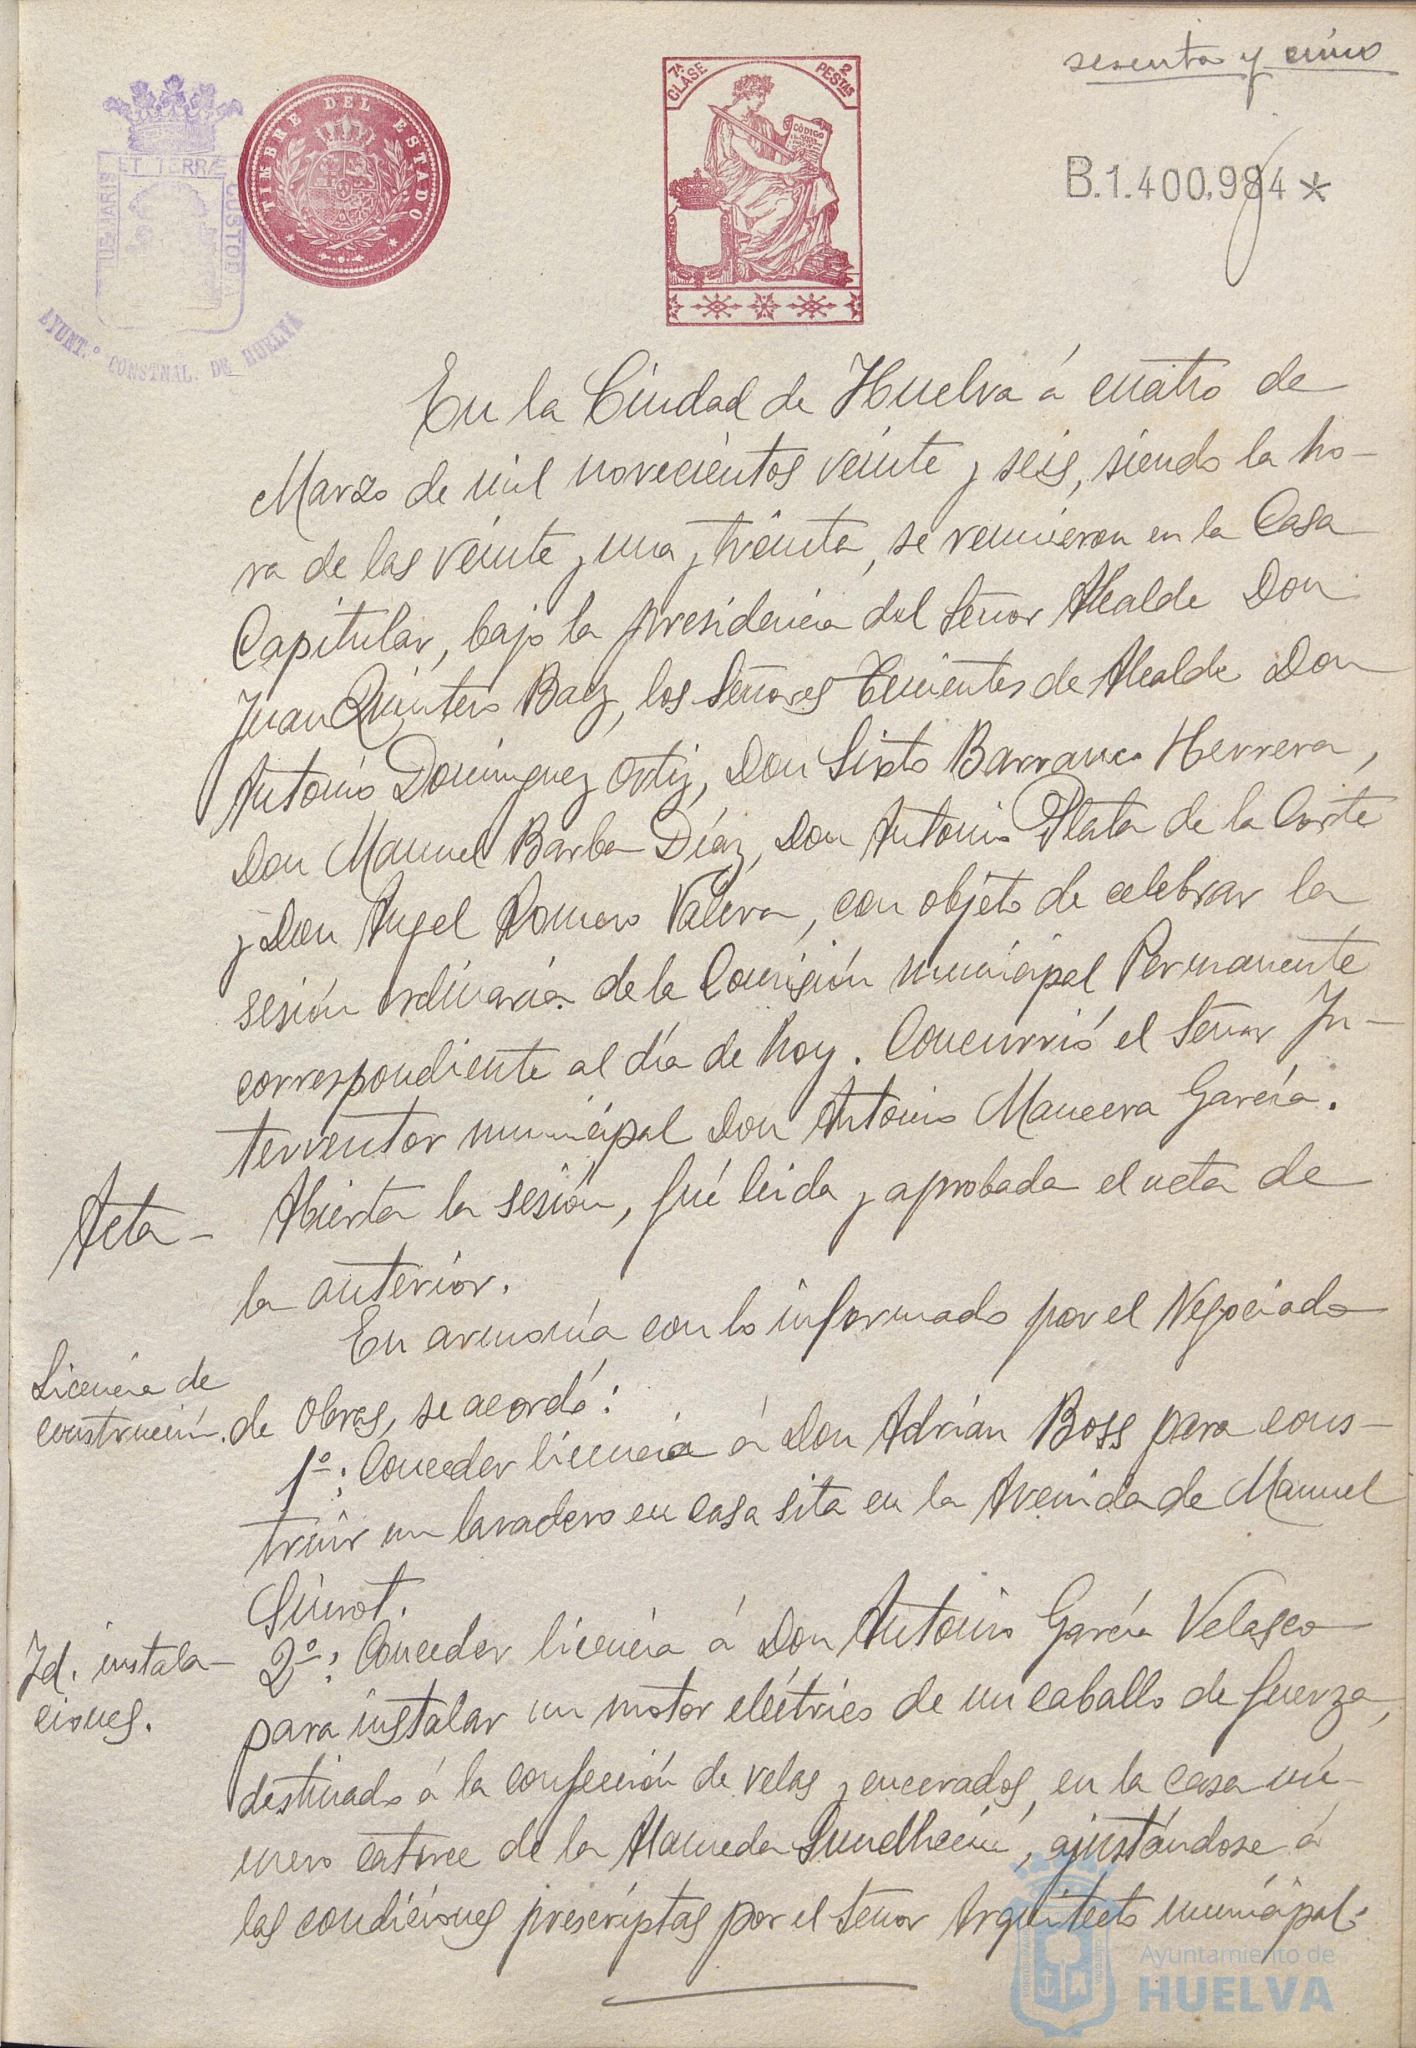 sesenta y cinco
PORTUS MARIS ET TERRÆ CUSTODIA
AYUNT.º CONSTNAL. DE HUELVA
TIMBRE DEL ESTADO
7ª CLASE
2 PESTAS
CÓDIGO
B.1.400.984*
En la Ciudad de Huelva á cuatro de
Marzo de mil novecientos veinte y seis, siendo la ho-
ra de las veinte y una y treinta, se reunieron en la Casa
Capitular, bajo la presidencia del Señor Alcalde Don
Juan Quintero Baez, los Señores Tenientes de Alcalde Don
Antonio Dominguez Ortiz, Don Sixto Barranco Herrera,
Don Manuel Barba Díaz, Don Antonio Plata de la Corte
y Don Angel Romero Valera, con objeto de celebrar la
sesión ordinaria de la Comisión municipal Permanente
correspondiente al día de hoy. Concurrió el Señor In-
terventor municipal Don Antonio Mancera García.
Acta- Abierta la sesión, fué leida y aprobada el acta de
la anterior.
En armonía con lo informado por el Negociado
Licencia de
construcción. de Obras, se acordó:
1º: Conceder licencia á Don Adrián Boss para cons-
truir un lavadero en casa sita en la Avenida de Manuel
Siurot.
Id. instala- 2º: Conceder licencia á Don Antonio García Velasco
ciones. para instalar un motor eléctrico de un caballo de fuerza,
destinado á la confección de velas y encerados, en la casa nú-
mero catorce de la Alameda Sundheim, ajustándose á
las condiciones prescriptas por el Señor Arquitecto municipal.
Ayuntamiento de
HUELVA